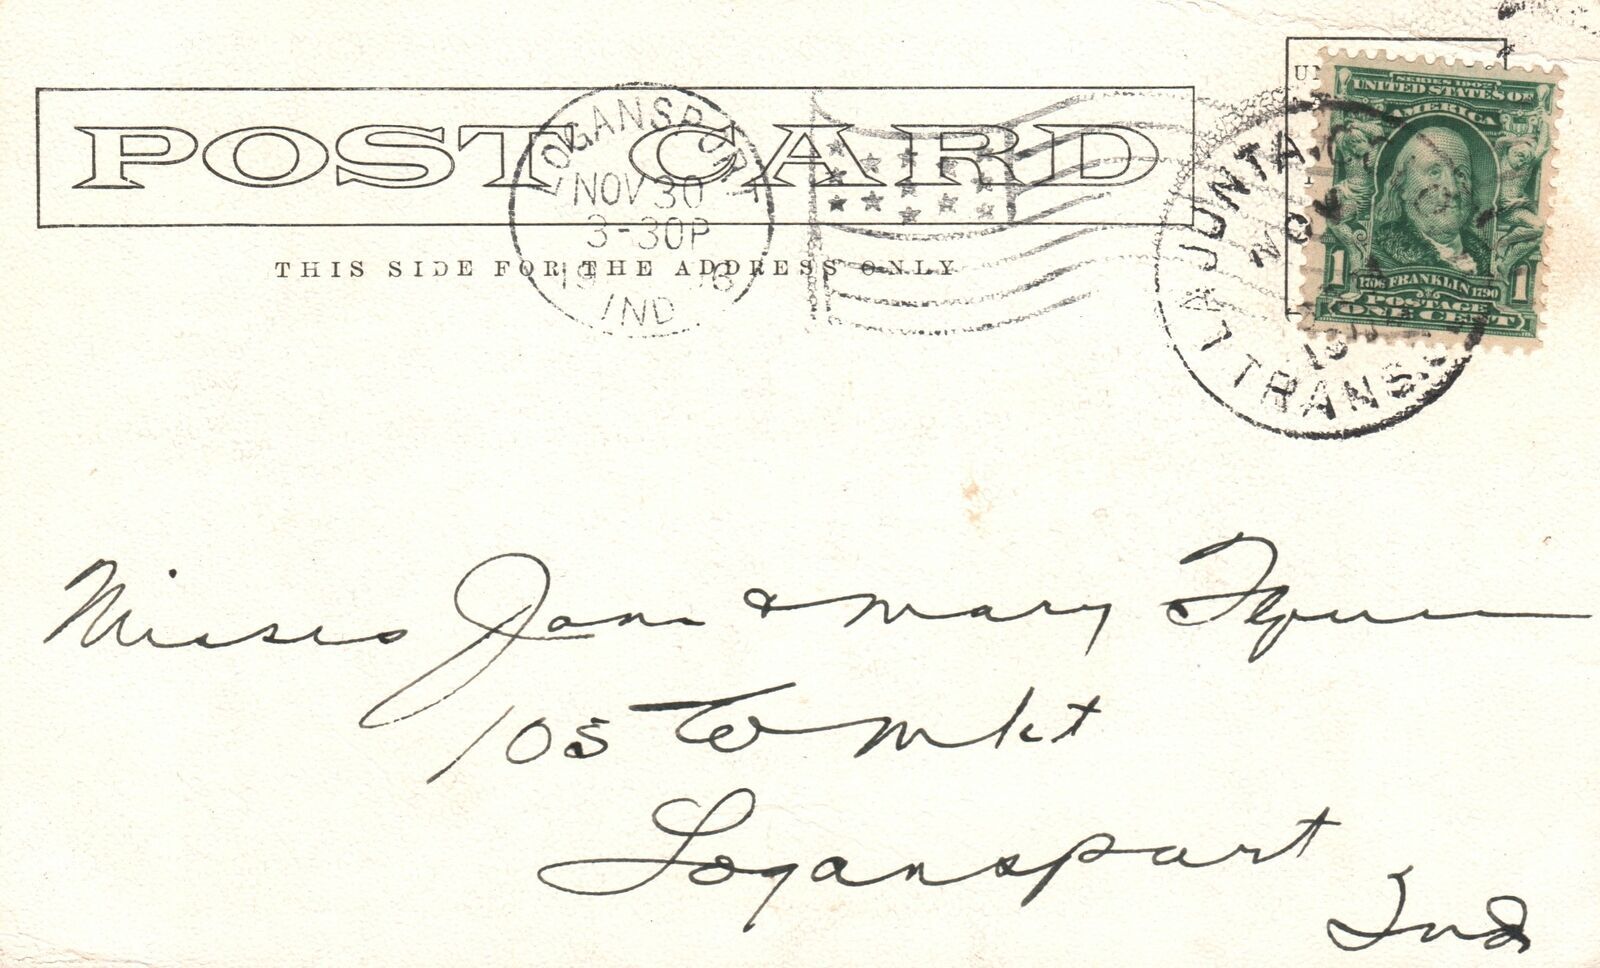 POST CARD
THIS SIDE FOR THE ADDRESS ONLY
LOGANSPORT
NOV 30
3-30P
1906
IND
LA JUNTA
NOV
TRANS.
SERIES 1902
UNITED STATES OF
AMERICA
1706 FRANKLIN 1790
1 1
POSTAGE
ONE CENT
Misses Jane & Mary Flynn
105 W Mkt
Logansport
Ind